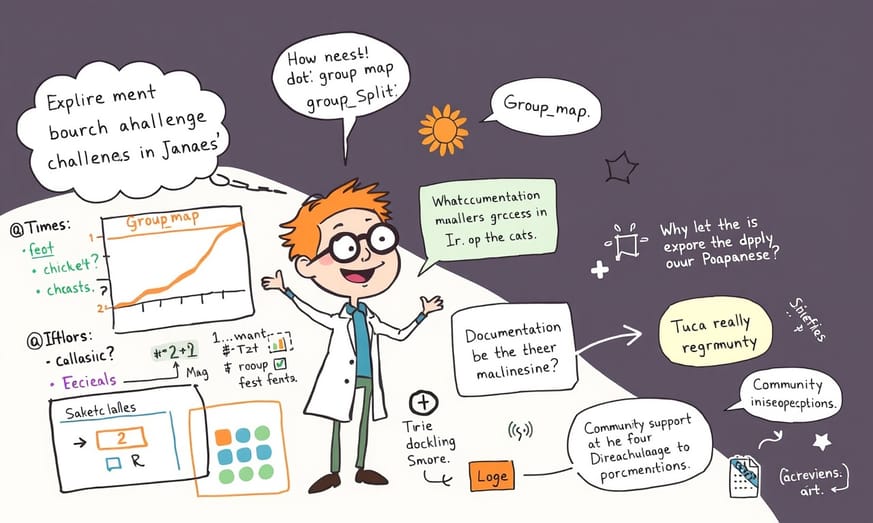 Explire ment
bourch ahallenge
challenes in Janaes'
How neest!
dot: group map
group_Split:
Group_map.
@Times:
• feot
• chickert?
• chcasts.
Group_map
1
2
?
Whatccumentation
muallers grccess in
Ir. op the cats.
Why let the is
expore the dpply
ovur Poapanese?
@Ifflors:
- callasic?
• Eecieals
#-2+2
Mag
1...want
#-T2t
# rooup
fest fents.
Saketc lalles
2
R
Documentation
be the theer
maclinesine?
Tuca really
regrmunty
Community
iniseopecptions.
Tirie
dockling
Smore.
Loge
Community support
at he four
Direachulaage to
porcmenitions.
(acreviens.)
art.